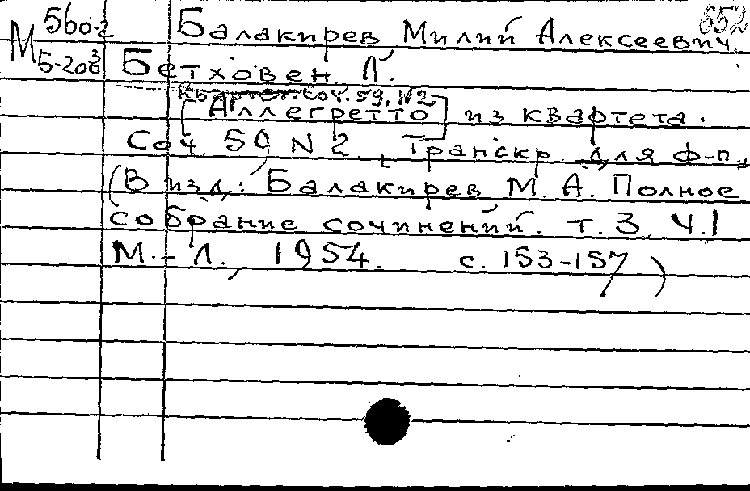 М 560-2 Балакирев Милий Алексеевич. 652
5-203 Бетховен Л.
Квартет. соч. 59, N2
[Аллегретто] из квартета.
Соч 59 N 2. Транскр. для ф-п.
(В изд.: Балакирев М. А. Полное
собрание сочинений. т. 3, ч. 1
М. - Л., 1954. с. 153-157)